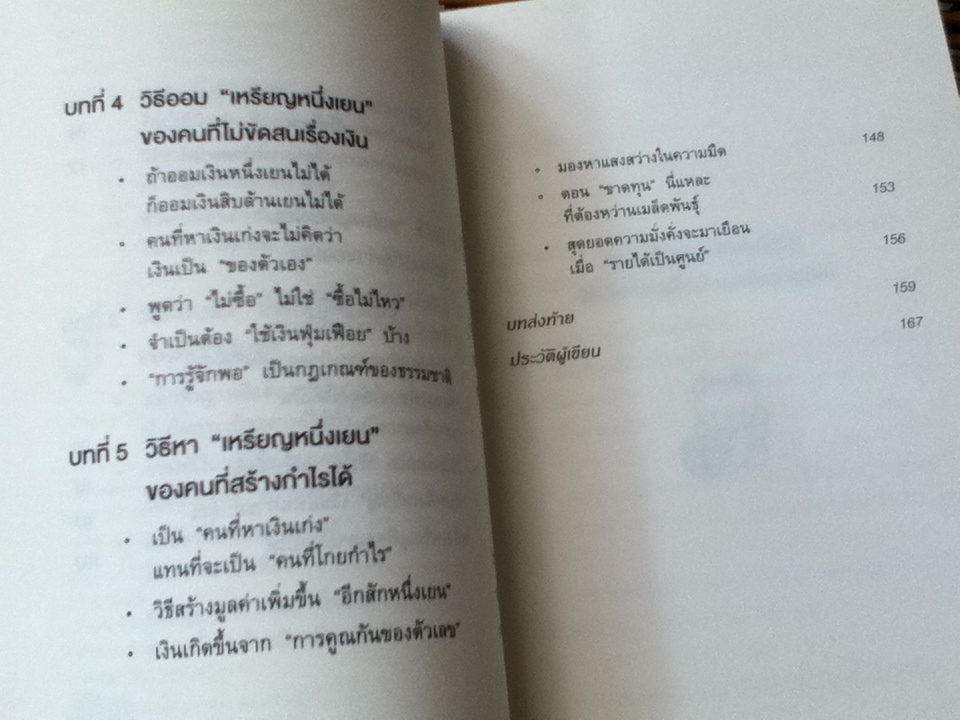 บทที่ 4 วิธีออม “เหรียญหนึ่งเยน”
ของคนที่ไม่ขัดสนเรื่องเงิน
• ถ้าออมเงินหนึ่งเยนไม่ได้
ก็ออมเงินสิบล้านเยนไม่ได้
• คนที่หาเงินเก่งจะไม่คิดว่า
เงินเป็น “ของตัวเอง”
• พูดว่า “ไม่ซื้อ” ไม่ใช่ “ซื้อไม่ไหว”
• จำเป็นต้อง “ใช้เงินฟุ่มเฟือย” บ้าง
• “การรู้จักพอ” เป็นกฎเกณฑ์ของธรรมชาติ
บทที่ 5 วิธีหา “เหรียญหนึ่งเยน”
ของคนที่สร้างกำไรได้
• เป็น “คนที่หาเงินเก่ง”
แทนที่จะเป็น “คนที่โกยกำไร”
• วิธีสร้างมูลค่าเพิ่มขึ้น “อีกสักหนึ่งเยน”
• เงินเกิดขึ้นจาก “การคูณกันของตัวเลข”
• มองหาแสงสว่างในความมืด 148
• ตอน “ขาดทุน” นี่แหละ
ที่ต้องหว่านเมล็ดพันธุ์ 153
• สุดยอดความมั่งคั่งจะมาเยือน
เมื่อ “รายได้เป็นศูนย์” 156
บทส่งท้าย 159
ประวัติผู้เขียน 167